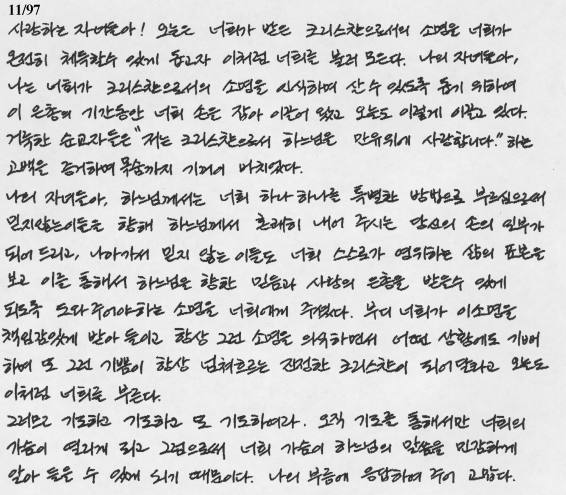 11/97
사랑하는 자녀들아! 오늘은 너희가 받은 크리스찬으로서의 소명을 너희가
온전히 체득할수 있게 돕고자 이처럼 너희를 불러 모은다. 나의 자녀들아,
나는 너희가 크리스찬으로서의 소명을 인식하며 살수 있도록 돕기 위하여
이 은총의 기간동안 너희 손을 잡아 이끌어 왔고 오늘도 이렇게 이끌고 있다.
거룩한 순교자들은 "저는 크리스찬으로서 하느님을 만유위에 사랑합니다." 하는
고백을 증거하며 목숨까지 기꺼이 바치었다.
나의 자녀들아, 하느님께서는 너희 하나 하나를 특별한 방법으로 부르심으로써
믿지않는이들을 향해 하느님께서 흔쾌히 내어 주시는 당신의 손의 일부가
되어 드리고, 나아가서 믿지 않는 이들도 너희 스스로가 영위하는 삶의 표본을
보고 이를 통해서 하느님을 향한 믿음과 사랑의 은총을 받을수 있게
되도록 도와주어야하는 소명을 너희에게 주셨다. 부디 너희가 이소명을
책임감있게 받아 들이고 항상 그런 소명을 의식하면서 어떤 상황에도 기뻐
하며 또 그런 기쁨이 항상 넘쳐흐르는 진정한 크리스찬이 되어 달라고 오늘도
이처럼 너희를 부른다.
그러므로 기도하고 기도하고 또 기도하여라. 오직 기도를 통해서만 너희의
가슴이 열리게 되고 그럼으로써 너희 가슴이 하느님의 말씀을 민감하게
알아 들을 수 있게 되기 때문이다. 나의 부름에 응답하여 주어 고맙다.